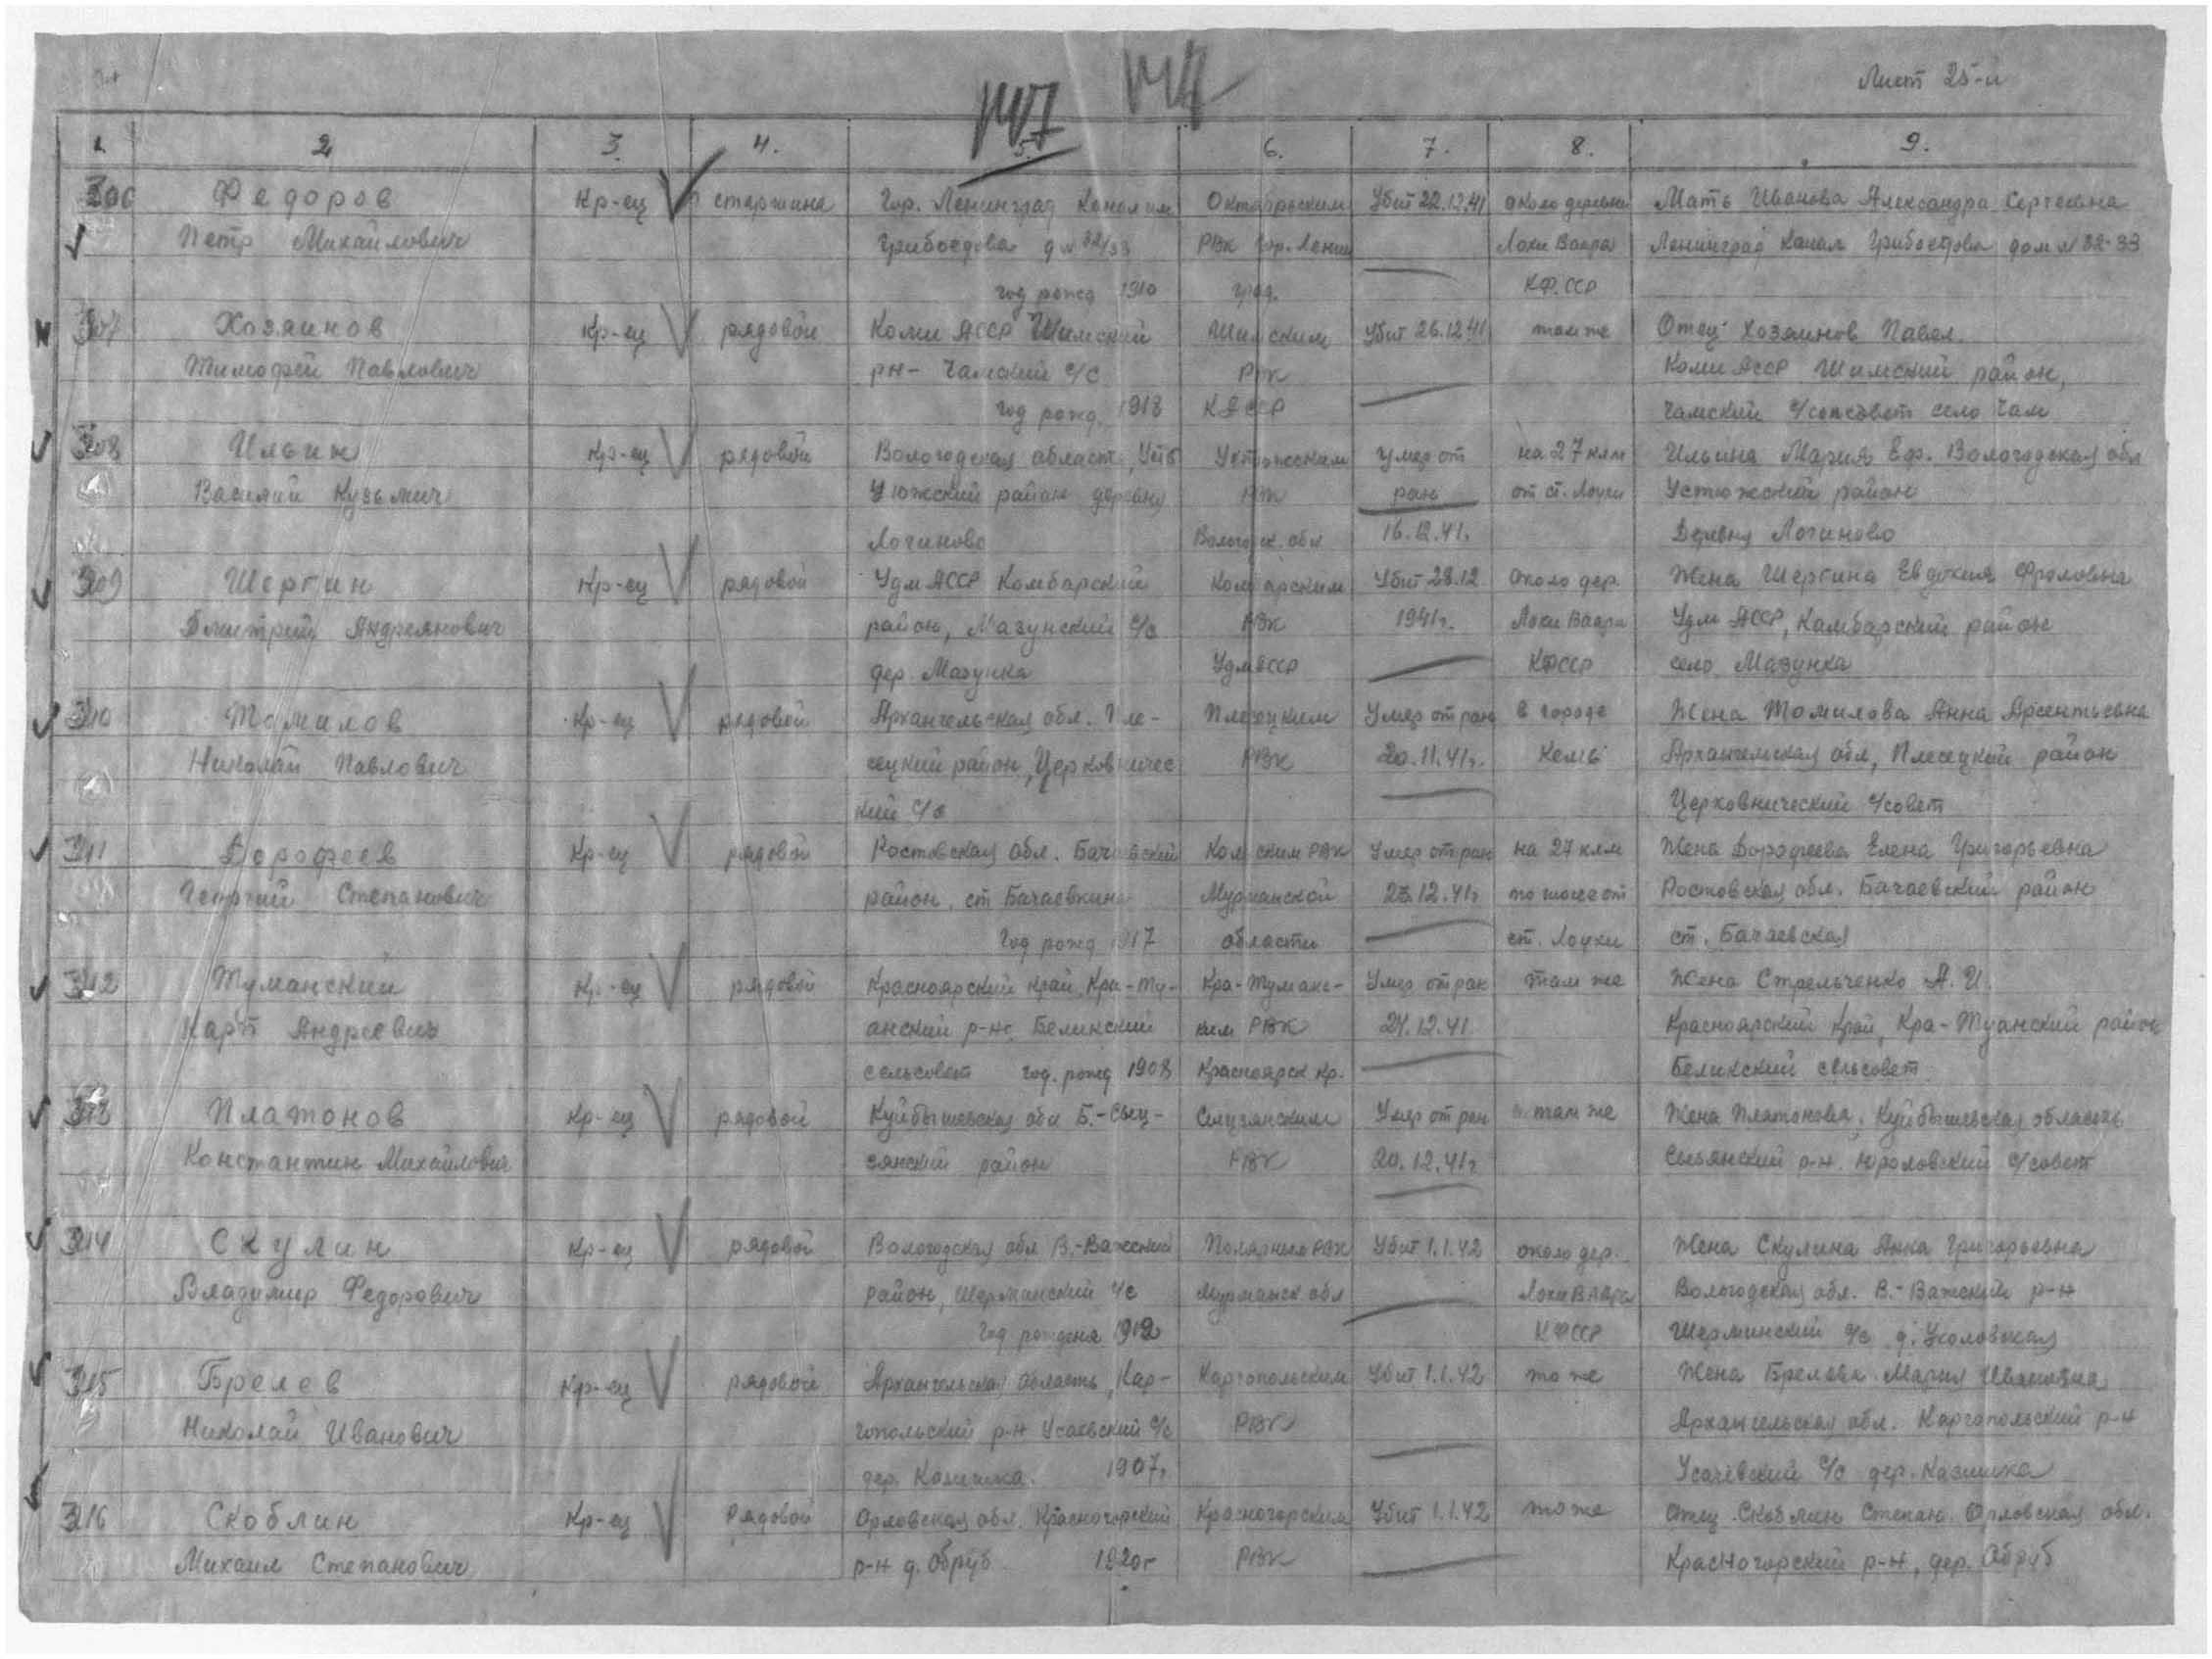 Лист 25-й
1. 2 3. 4. 5. 6. 7. 8. 9.
306 Федоров Кр-ец старшина Гор. Ленинград Канал им Октябрьским Убит 22.12.41 около деревни Мать Иванова Александра Сергеевна
Петр Михайлович Грибоедова д № 32/33 РВК гор. Ленин Лохи Ваара Ленинград Канал Грибоедова дом № 32-33
год рожд 1910 град. КФ.ССР
307 Хозяинов Кр-ец рядовой Коми АССР Шимский Шимским Убит 26.12.41 там же Отец Хозяинов Павел.
Тимофей Павлович рн- Чамский с/с РВК Коми АССР Шимский район,
год рожд. 1918 КАССР Чамский с/сельсовет село Чам
308 Ильин Кр-ец рядовой Вологодская област, Умер от на 27 клм Ильина Мария Еф. Вологодская обл
Василий Кузьмич район деревня РВК ран от ст. Лоухи Устюжский район
Логиново Вологодск. обл 16.12.41. Деревня Логиново
309 Шергин Кр-ец рядовой Удм АССР Комбарский Комбарским Убит 28.12 около дер. Жена Шергина Евдокия Фроловна
Дмитрий Андреянович район, Мазунский с/с РВК 1941г. Лохи Ваара Удм АССР, Камбарский район
дер. Мазунка УдмАССР КФССР село Мазунка
310 Томилов Кр-ец рядовой Архангельская обл. Пле- Плесецким Умер от ран в городе Жена Томилова Анна Арсентьевна
Николай Павлович сецкий район, Церковничес РВК 20.11.41г. Кемь Архангельская обл, Плесецкий район
кий с/с Церковнический с/совет
311 Дорофеев Кр-ец рядовой Ростовская обл. Багаевский Кольским РВК Умер от ран на 27 клм Жена Дорофеева Елена Григорьевна
Георгий Степанович район, ст Мурманской 23.12.41г по шоссе от Ростовская обл. Багаевский район
Год рожд 1917 области ст. Лоухи ст. Багаевская
312 Туманский Кр-ец рядовой Красноярский край, Кра-Ту- Кра-Туманс- Умер от ран Там же Жена Стрельченко А. И.
Карп Андреевич анский р-н Белинский ким РВК 24.12.41 Красноярский край, Кра-Туанский район
сельсовет год. рожд 1908 Красноярск кр. Белинский сельсовет
313 Платонов Кр-ец рядовой Куйбышевская обл Б.-Сыз- Сызранским Умер от ран там же Жена Платонова, Куйбышевская область
Константин Михайлович район РВК 20.12.41г р-н с/совет
314 Скулин Кр-ец рядовой Вологодская обл В.-Важский Полярным РВК Убит 1.1.42 около дер. Жена Скулина Анна Григорьевна
Владимир Федорович район, Шерминский с/с Мурманск. обл Лохи Ваара Вологодская обл. В.-Важский р-н
Год рожденя 1912 КФССР Шерминский с/с д.
315 Брелев Кр-ец рядовой Архангельская область, Кар- Каргопольским Убит 1.1.42 то же Жена Брелева Мария Ивановна
Николай Иванович гопольский р-н Усачевский с/с РВК Архангельская обл. Каргопольский р-н
дер. Казимка. 1907г Усачевский с/с дер. Казимка
316 Скоблин Кр-ец Рядовой Орловская обл. Красногорский Красногорским Убит 1.1.42 то же Отец Скоблин Степан. Орловская обл.
Михаил Степанович р-н д. Обруб 1920г РВК Красногорский р-н, дер. Обруб